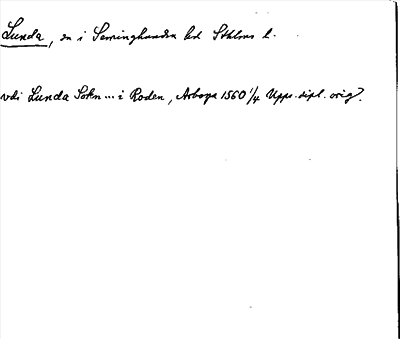 Lunda, sn i Seminghundra hd Sthlms l.
vdi Lunda Sokn ... i Roden, Arboga 1560 1/4 Upps. dipl. orig.